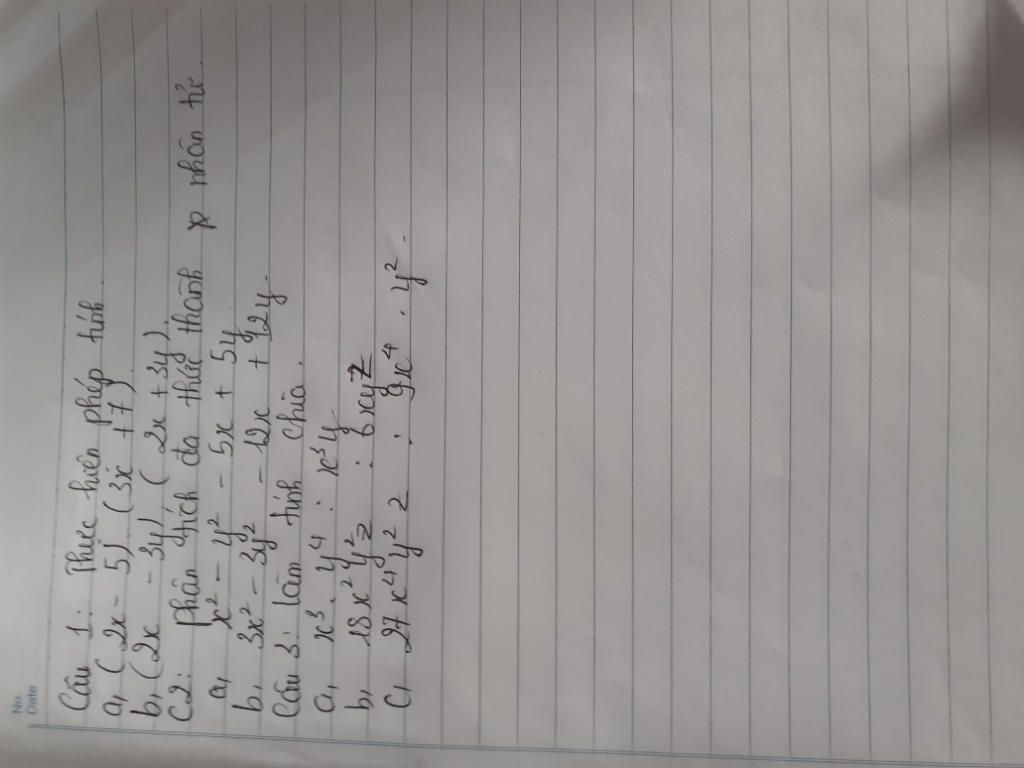 No.
Date
Câu 1: Thực hiện phép tính.
a, (2x - 5) (3x + 7)
b, (2x - 3y) (2x + 3y).
C2: phân tích đa thức thành nhân tử.
a, x² - y² - 5x + 5y
b, 3x² - 3y² - 12x + 12y.
Câu 3: làm tính chia.
a, x³.y⁴ : x³y
b, 18x²y²z : 6xyz
c, 27x⁴y²z : 9x⁴.y².